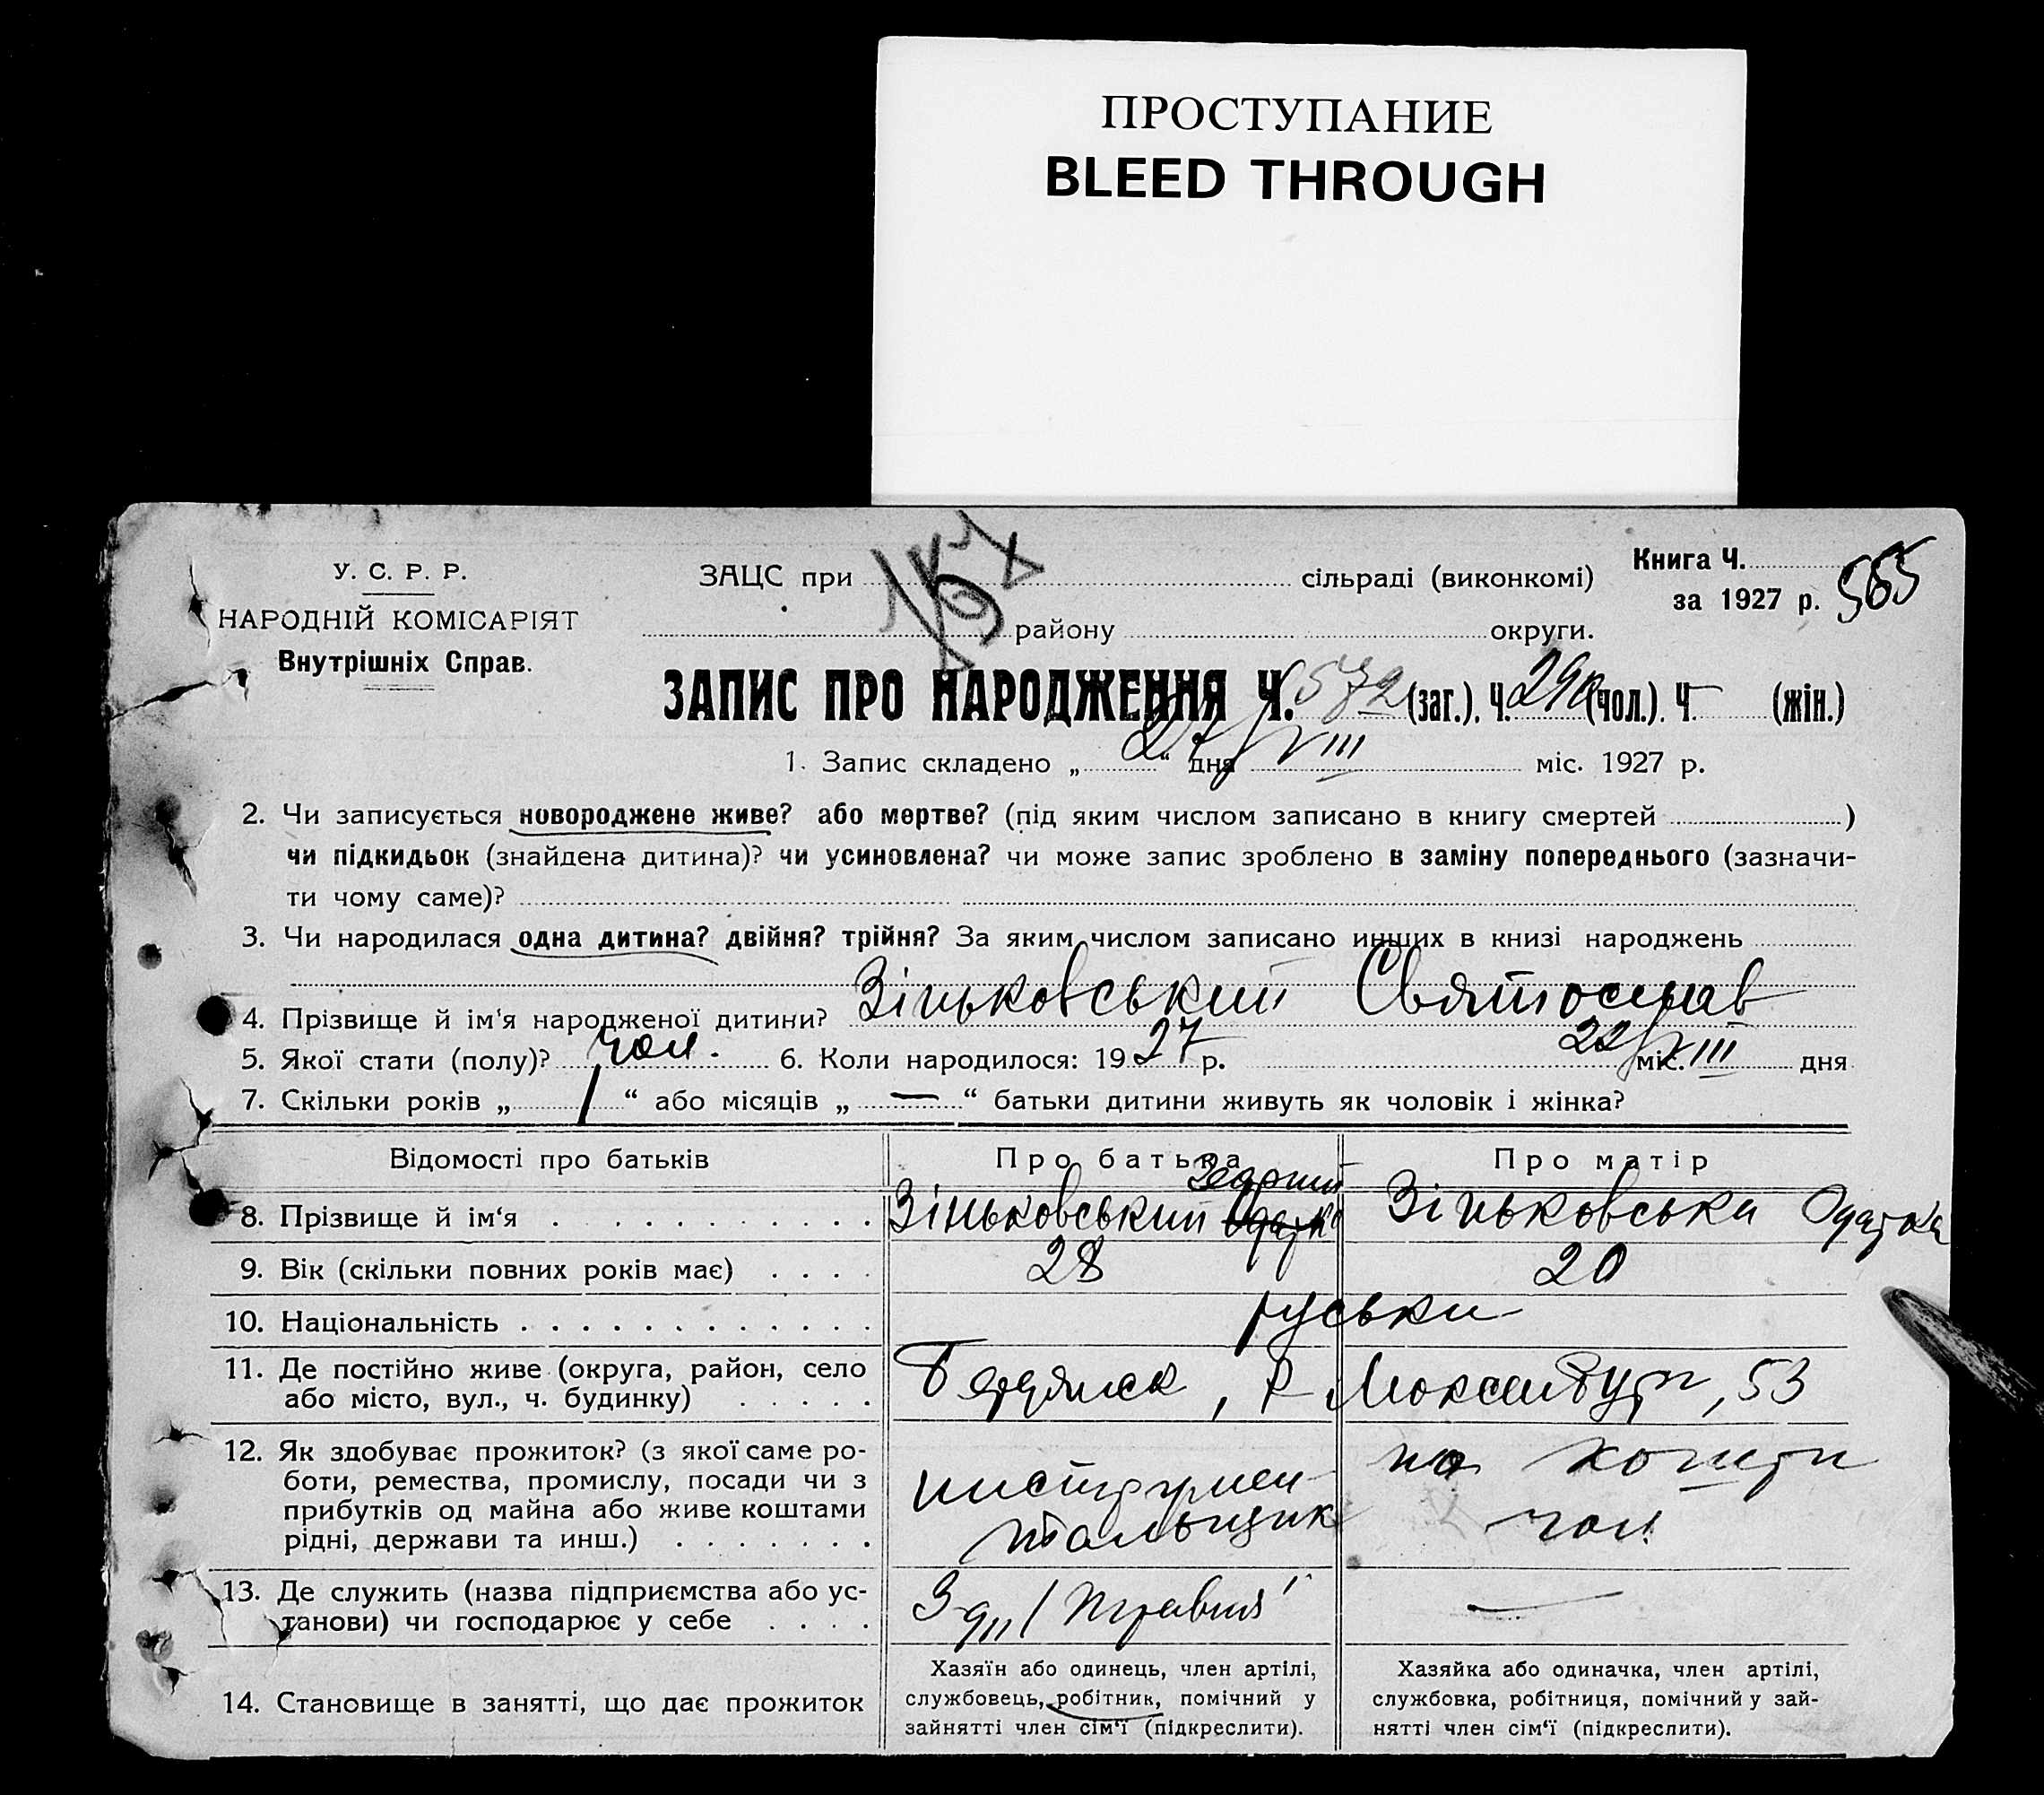 ПРОСТУПАНИЕ
BLEED THROUGH
У. С. Р. Р.
НАРОДНІЙ КОМІСАРІЯТ
Внутрішніх Справ.
ЗАЦС при сільраді (виконкомі)
району округи.
Книга Ч.
за 1927 р. 565
ЗАПИС ПРО НАРОДЖЕННЯ Ч. 572 (заг.). Ч. 290 (чол.). Ч — (жін.)
1. Запис складено „ “ дня VIII міс. 1927 р.
2. Чи записується новороджене живе? або мертве? (під яким числом записано в книгу смертей )
чи підкидьок (знайдена дитина)? чи усиновлена? чи може запис зроблено в заміну попереднього (зазначи-
ти чому саме)?
3. Чи народилася одна дитина? двійня? трійня? За яким числом записано инших в книзі народжень
4. Прізвище й ім'я народженої дитини? Зіньковський Святослав
5. Якої стати (полу)? чол. 6. Коли народилося: 1927 р. 22/VIII міс. дня
7. Скільки років „ 1 “ або місяців „ — “ батьки дитини живуть як чоловік і жінка?
Відомості про батьків Про батька Про матір
8. Прізвище й ім'я Зіньковський Зіньковська Одарка
9. Вік (скільки повних років має) 28 20
10. Національність руськи
11. Де постійно живе (округа, район, село
або місто, вул., ч. будинку)
Бердянск, Р Люксембург, 53
12. Як здобуває прожиток? (з якої саме ро-
боти, ремества, промислу, посади чи з
прибутків од майна або живе коштами
рідні, держави та инш.)
инструмен-
тальщик
на кошти
чол.
13. Де служить (назва підприємства або ус-
танови) чи господарює у себе
З-д „1 травня“ —
14. Становище в занятті, що дає прожиток
Хазяїн або одинець, член артілі,
службовець, робітник, помічний у
зайнятті член сім'ї (підкреслити).
Хазяйка або одиначка, член артілі,
службовка, робітниця, помічний у зай-
нятті член сім'ї (підкреслити).